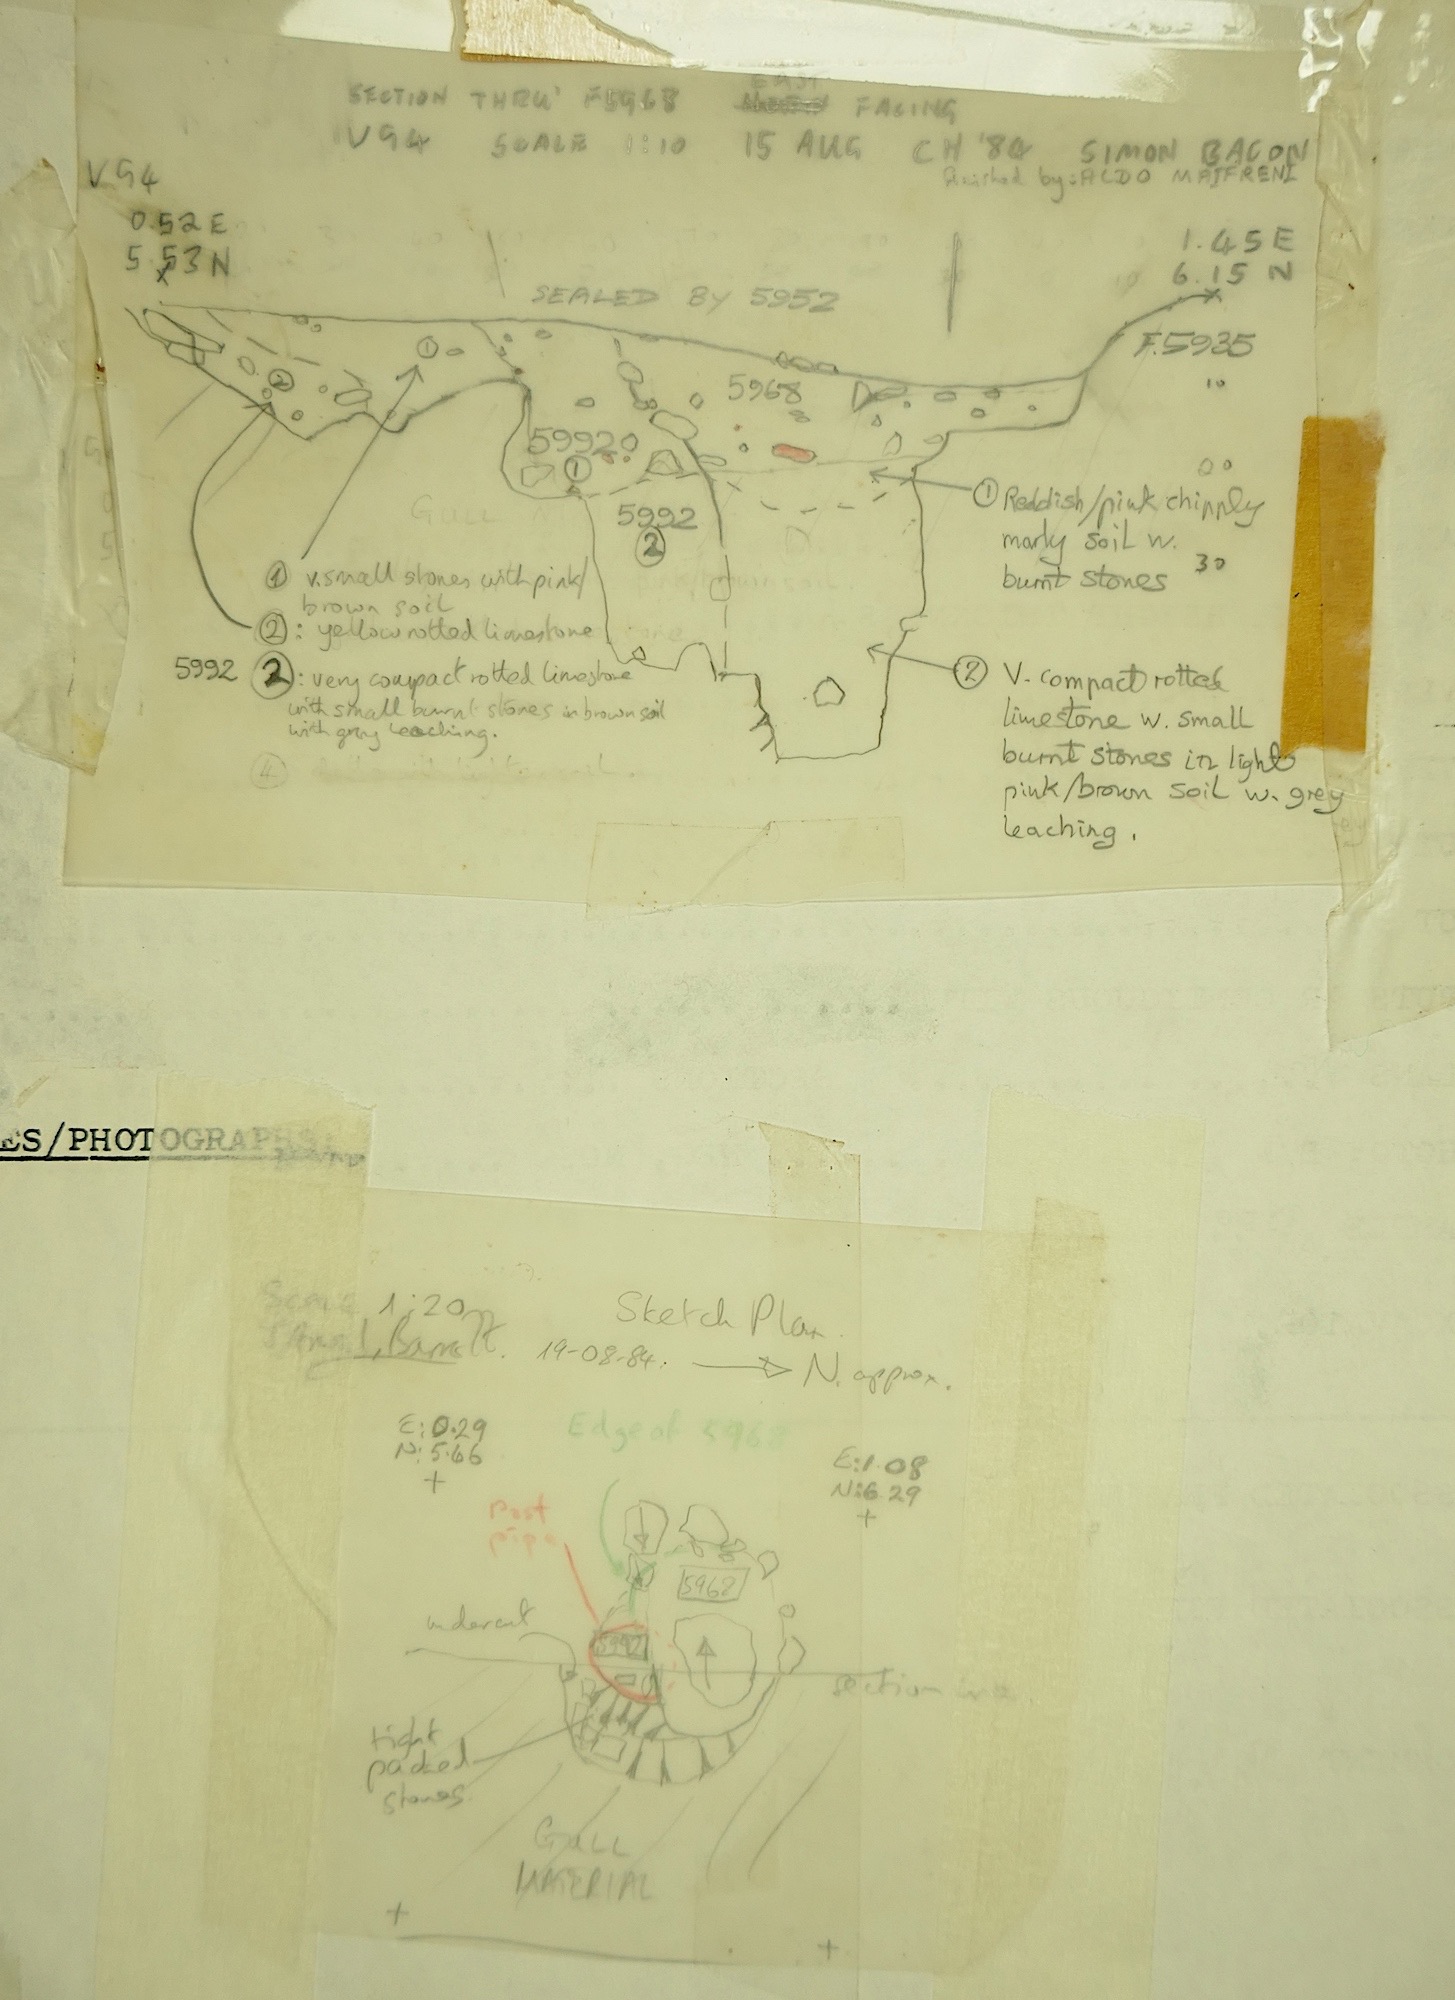 SECTION THRU' F5968 EAST FACING
V94 SCALE 1:10 15 AUG CH '84 SIMON BACON
finished by: ALDO
V94
0.52 E
5.53 N
1.45 E
6.15 N
SEALED BY 5952
F.5935
10
1
2
5968
5992
1
5992
2
GULL
00
30
1 Reddish/pink chipply
marly soil w.
burnt stones
1 v.small stones with pink/
brown soil
2: yellow rotted limestone
5992 2: very compact rotted limestone
with small burnt stones in brown soil
with grey leaching.
4
2 V. compact rotted
limestone w. small
burnt stones in light
pink/brown soil w. grey
leaching.
ES/PHOTOGRAPHS
Scale 1:20
Sketch Plan.
Barrett.
19-08-84. N. approx.
E: 0.29
N: 5.66
Edge of 5968
E: 1.08
N: 6.29
Post
pipe
5968
undercut
5992
section line
tight
packed
stones
GULL
MATERIAL